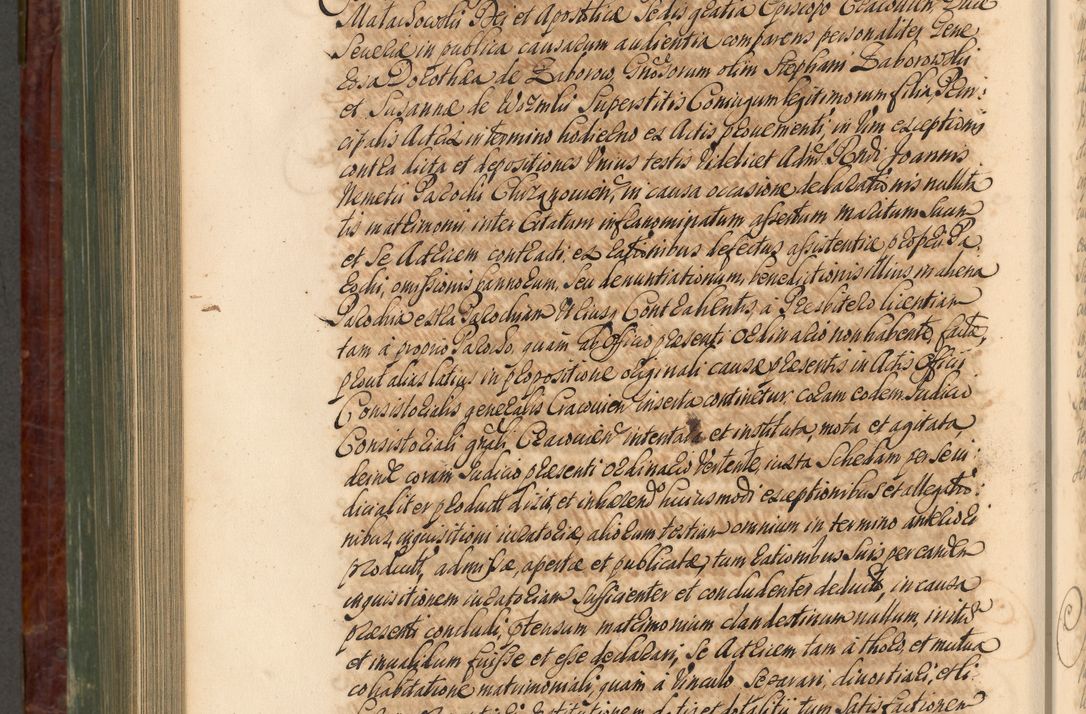 Malachowski Dei et Apostolicæ Sedis gratia Episcopo Cracovien Duce
Severiæ in publica causarum audientia comparens personaliter Gene
rosa Dorothea de Zaborow, Gnosorum olim Stephani Zaborowski
et Susannæ de Superstitis Coniugum legitimorum filia, Prin:
cipalis Actrix in termino hodierno ex Actis proveniente, in vim exceptionis
contra dicta et depositiones unius testis videlicet Admd Rndi Joannis
Nemetii Parochi Chrzanovien, in causa occasione declarationis nullita
tis matrimonii inter Citatum infranominatum assertum maritum suum
et se Actricem contracti ex rationibus defectus assistentiæ proprii Pa
rochi, omissionis bannorum, seu denuntiationum, benedictionis illius in aliena
Parochia extra Parochiam utriusq Contrahentis, a Presbitero licentiam
tam a proprio Parocho, quam ab Officio præsenti ordinario non habente, facta,
prout alias latius in propositione originali causæ præsentis in Actis Officii
Consistorialis generalis Cracovien inserta continetur, coram eodem Judicio
Consistoriali gnrali Cracovien intentata et instituta, mota et agitata,
deinde coram Judicio præsenti ordinario vertente, iuxta Schedam per se iu:
dicialiter productt dixit, et inhærend huiusmodi exceptionibus et allegatio:
nibus, inquisitioni iuratoriæ, aliorum testium omnium in termino anteriori
productt, admissæ, apertæ et publicatæ, tum rationibus suis per eandem
inquisitionem iuratoriam sufficienter et concludenter deductt, in causa
præsenti concludi, prætensum matrimonium clandestinum nullum, irritu
et invalidum fuisse et esse declarari, se Actricem tam a thoro, et mutua
cohabitatione matrimoniali, quam a vinculo separari, divortiari, et li
dotis et dotalitii tum satisfactionem